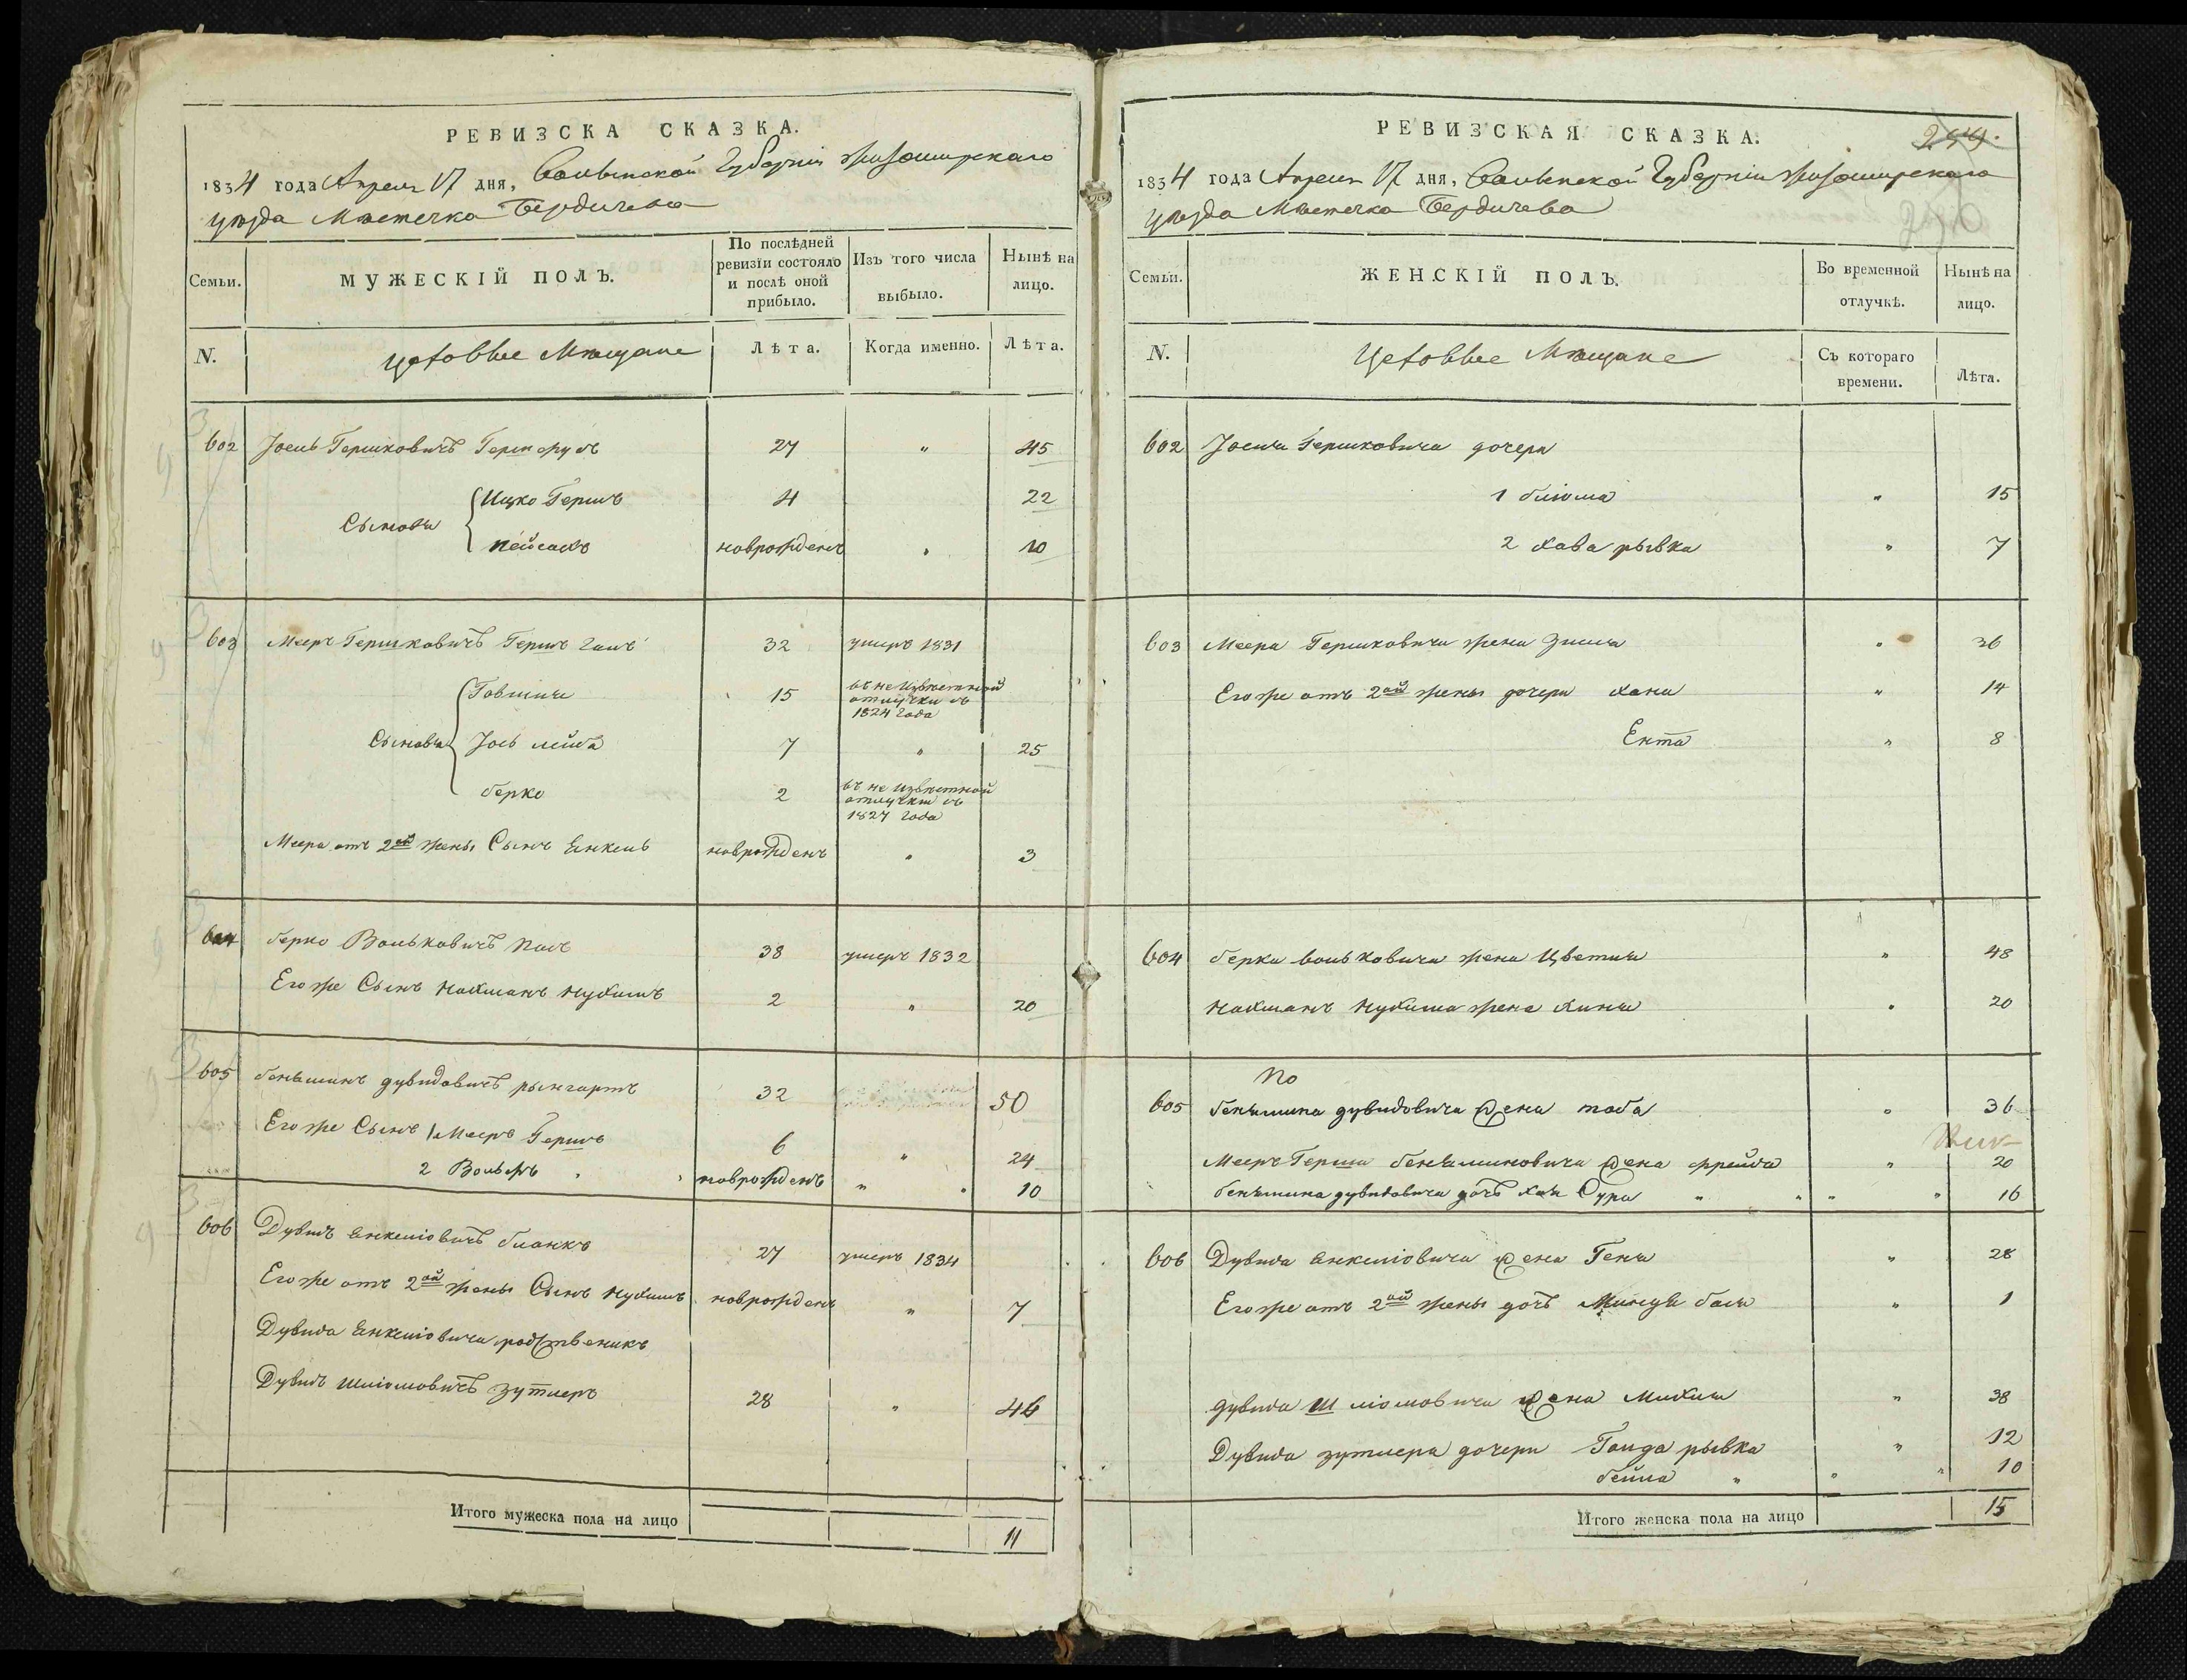 РЕВИЗСКА СКАЗКА.
1834 года Апреля 17 дня, Волынской Губерніи Житомирскаго
уезда Местечка Бердичева
Семьи.
МУЖЕСКІЙ ПОЛЪ.
По послѣдней ревизіи состояло и послѣ оной прибыло.
Изъ того числа выбыло.
Нынѣ на лицо.
N.
Цеховые Мѣщане
Лѣта.
Когда именно.
Лѣта.
602 Іосль Гершковичъ 27 " 45
Сыновья
Ицко Гершъ 4 22
Пейсахъ новрожденъ " 10
603 Мееръ Гершковичъ Гершъ 32 умеръ 1831
Сыновья
15 въ не Извѣстной отлучки съ 1824 года
Іось лейба 7 " 25
берко 2 въ не Извѣстной отлучки съ 1827 года
Меера отъ 2ой жены Сынъ Янкель новрожденъ " 3
604 берко Вольковичъ 38 умеръ 1832
Его же Сынъ Нахманъ Нухимъ 2 " 20
605 беньминъ дувидовичъ рынгартъ 32 50
Его же Сынъ 1 Мееръ Гершъ 6 " 24
2 Вольфъ новрожденъ " " 10
606 Дувидъ Янкеліовичъ бланкъ 27 умеръ 1834
Его же отъ 2ой жены Сынъ Нухимъ новрожденъ " 7
Дувида Янкеліовича родственикъ
Дувидъ Шліомовичъ зутлеръ 28 " 46
Итого мужеска пола на лицо 11
РЕВИЗСКАЯ СКАЗКА.
1834 года Апреля 17 дня, Волынской Губерніи Житомирскаго
уезда Местечка Бердичева
Семьи.
ЖЕНСКІЙ ПОЛЪ.
Во временной отлучкѣ.
Нынѣ на лицо.
N.
Цеховые Мѣщане
Съ котораго времени.
Лѣта.
602 Іосля Гершковича дочери
1 блюма " 15
2 хава рывка " 7
603 Меера Гершковича жена Зисля " 36
Его же отъ 2ой жены дочери хана " 14
Ента " 8
604 берка вольковича жена Цветля " 48
Нахманъ Нухима жена хина " 20
По
605 беньмина дувидовича жена тоба " 36
Мееръ Герша беньминовича жена фрейда " 20
беньмина дувидовича дочь хая Сура " " " " 16
606 Дувида Янкеліовича жена Геня " 28
Его же отъ 2ой жены дочь Миндля бася " 1
дувида Шліомовича жена Михля " 38
Дувида зутлера дочери Голда рывка " 12
бейла " " " 10
Итого женска пола на лицо 15